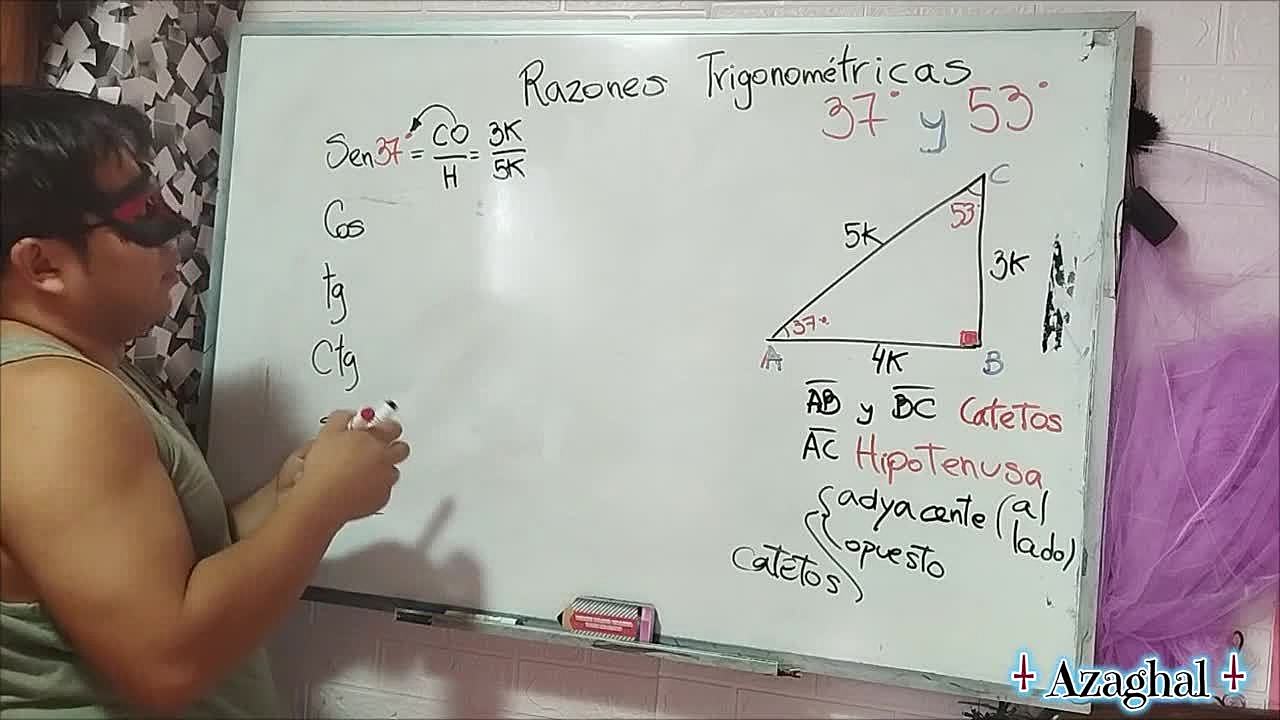 Razones Trigonométricas
37° y 53°
Sen37° = CO/H = 3K/5K
Cos
tg
Ctg
C
53°
5K
3K
37°
A
4K
B
AB y BC Catetos
AC Hipotenusa
Catetos { adyacente (al lado)
opuesto
Azaghal